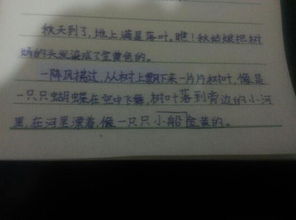 秋天到了,地上满是落叶。瞧!秋姑娘把树
妈的头发染成了金黄色的。
一阵风拂过,从树上飘下来一片片树叶,像是
一只只蝴蝶在空中飞舞,树叶落到旁边的小河
里,在河里漂着,像一只只小船金黄的。